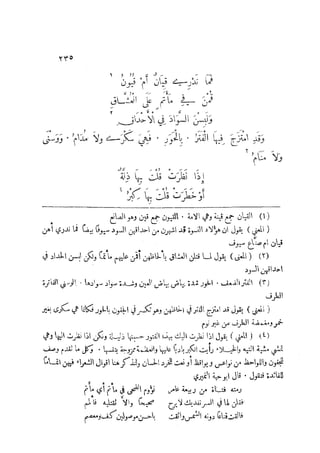 ٢٣٥
فَمَا نَدْرِي قِيَانٌ أَمْ قُيُونُ ١
قُمْنَ فِي مَأْتَمٍ عَلَى الْعُشَّاقِ
وَلَبِسْنَ السَّوَادَ فِي الْأَحْدَاقِ ٢
وَقَدِ امْتَزَجَ فِيهَا الْفَتَرُ ٠ بِالْحَوَرِ ٠ فَهِيَ سَكْرَى وَلاَ مُدَامُ ٠ وَوَسْنَى
وَلاَ مَنَامُ ٣
إِذَا نَظَرَتْ قُلْتَ بِهَا ذِلَّةٌ
أَوْ خَطَرَتْ قُلْتَ بِهَا كِبْرُ ٤
(١) القيان جمع قينة وهي الامة ٠ القيون جمع قين وهو الصانع
( المعنى ) يقول ان هؤلاء النسوة قد اشهرن من احداقهن السود سيوفًا بيضًا فما ندري أهن
قيان ام صنّاع سيوف
(٢) ( المعنى ) يقول لما قتلن العشاق بألحاظهن أقمن عليهم مأتمًا ولكن لبسن الحداد في
احداقهن السود
(٣) الفتر الضعف ٠ الحور شدة بياض بياض العين وشدة سواد سوادها ٠ الوسنى الفاترة
الطرف
( المعنى ) يقول قد امتزج الفتر في الحاظهن وهو تكسر في الجفون بالحور فكأنها هي سكرى بغير
خمر ومغمضة الطرف من غير نوم
(٤) ( المعنى ) يقول اذا نظرت اليك بهذه الفتور حسبتها ذليلة ولكن اذا نظرت اليها وهي
تمشي مشية التيه والخيلاء رأيت الكبر باديًا عليها والعظمة ممزوجة بنفسها ٠ وكل ما تقدم وصف
للجفون واللواحظ من نواعس ويواقظ أو نعت للخرد الحسان ولنذكر هنا اقوال الشعراء فيهن اتمامًا
للفائدة فنقول ٠ قال ابو حية النميري
رمته فتاة من ربيعة عامر نؤوم الضحى في مأتم أي مأتم
فقلن لها في السر نفديك لا يرح صحيحًا والاّ تقتليه فألمم
فالقت قناعًا دونه الشمس واتقت باحسن موصولين كف ومعصم